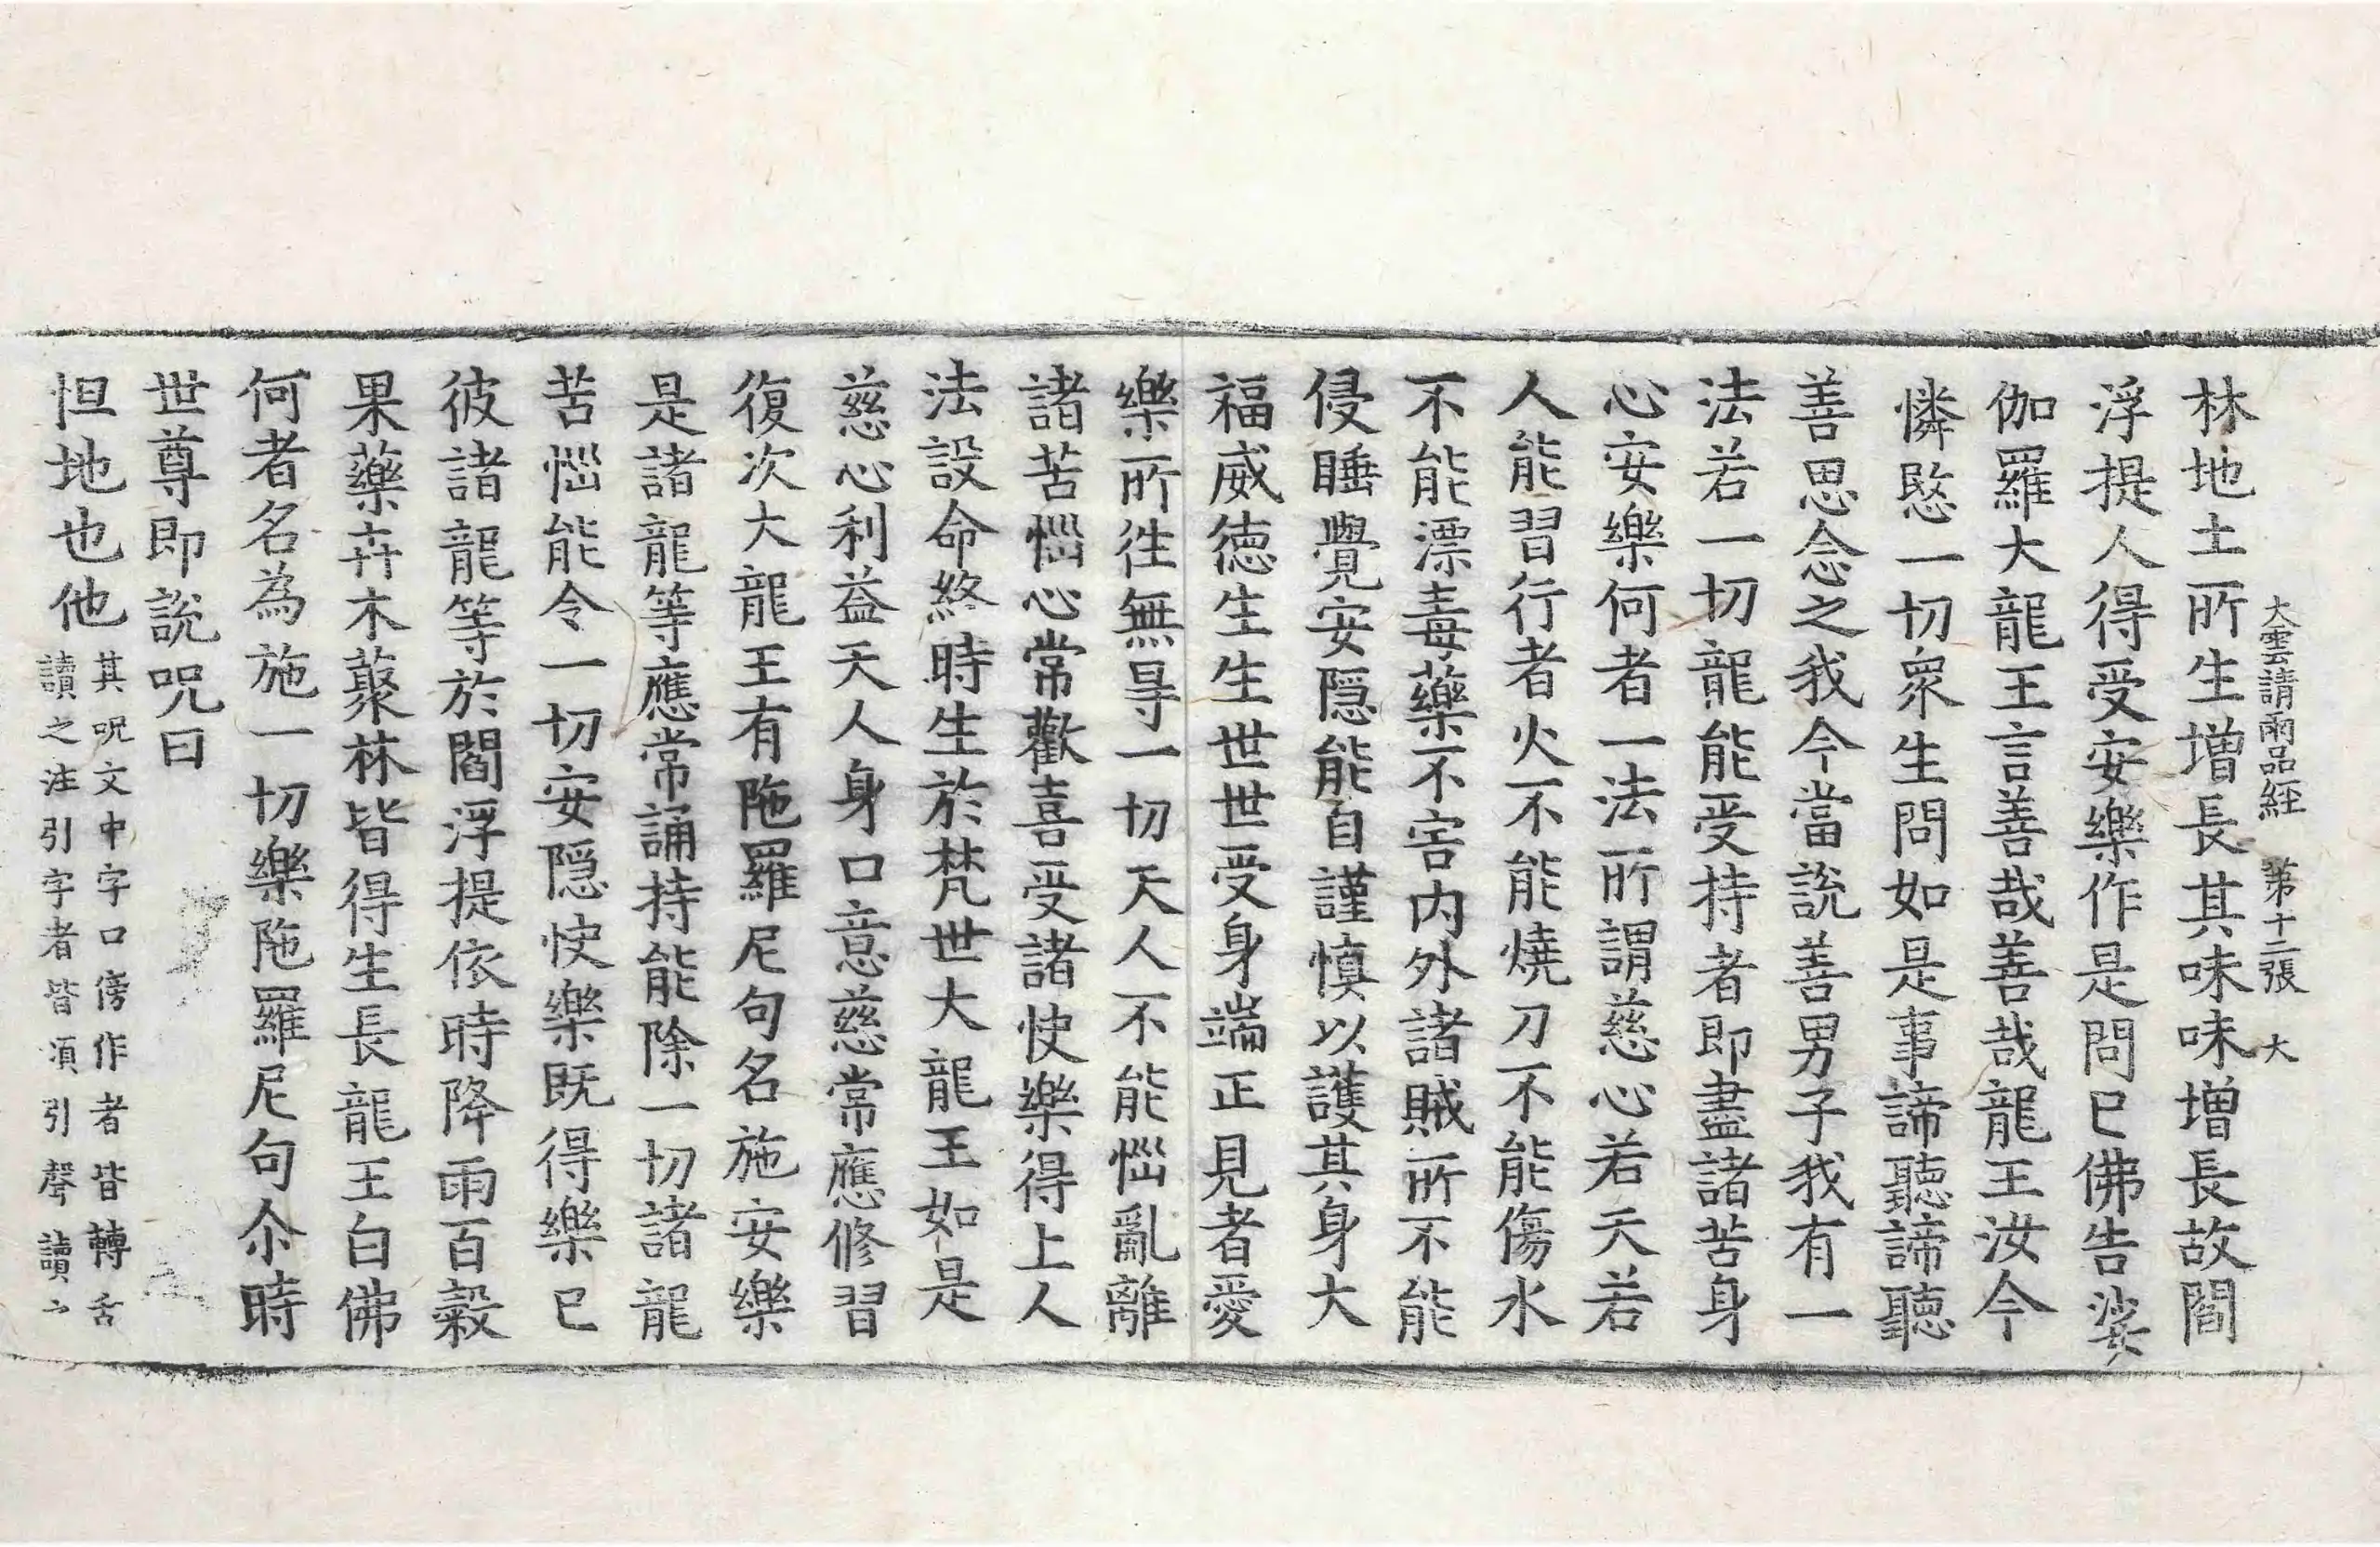 大雲請雨品経　第十二張　大
林地土所生增長其味味增長故閻
浮提人得受安樂作是問已佛告娑
伽羅大龍王言善哉善哉龍王汝今
憐愍一切衆生問如是事諦聽諦聽
善思念之我今當說善男子我有一
法若一切龍能受持者即盡諸苦身
心安樂何者一法所謂慈心若天若
人能習行者火不能燒刀不能傷水
不能漂毒藥不害内外諸賊所不能
侵睡覺安隠能自謹慎以護其身大
福威徳生生世世受身端正見者愛
樂所徃無㝵一切天人不能惱亂離
諸苦惱心常歡喜受諸快樂得上人
法設命終時生於梵世大龍王如是
慈心利益天人身口意慈常應修習
復次大龍王有陁羅尼句名施安樂
是諸龍等應常誦持能除一切諸龍
苦惱能令一切安隠快樂既得樂已
彼諸龍等於閻浮提依時降雨百穀
果藥卉木藂林皆得生長龍王白佛
何者名為施一切樂陁羅尼句尒時
世尊即說呪曰
怛地也他其呪文中字口傍作者皆轉舌
讀之注引字者皆須引聲讀之